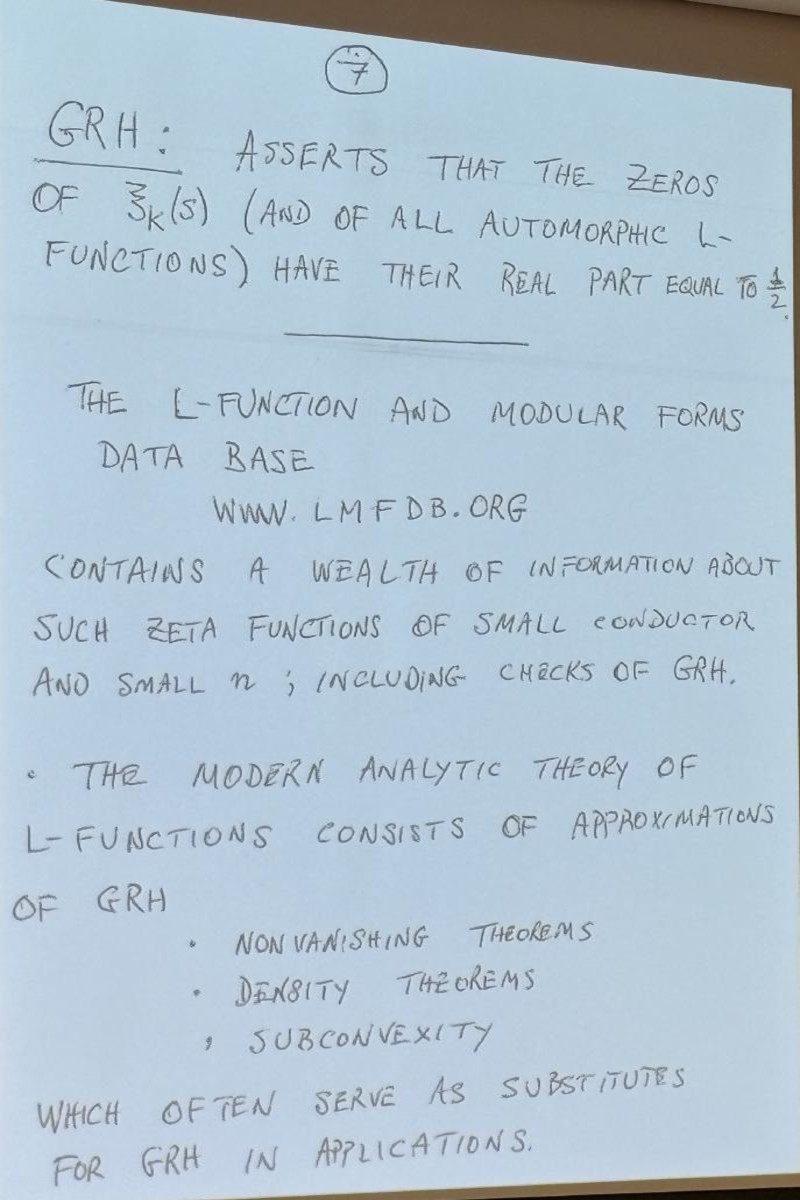 7
GRH: ASSERTS THAT THE ZEROS
OF ξ_K(s) (AND OF ALL AUTOMORPHIC L-
FUNCTIONS) HAVE THEIR REAL PART EQUAL TO 1/2.
THE L-FUNCTION AND MODULAR FORMS
DATA BASE
WWW.LMFDB.ORG
CONTAINS A WEALTH OF INFORMATION ABOUT
SUCH ZETA FUNCTIONS OF SMALL CONDUCTOR
AND SMALL n ; INCLUDING CHECKS OF GRH.
• THE MODERN ANALYTIC THEORY OF
L-FUNCTIONS CONSISTS OF APPROXIMATIONS
OF GRH
• NON VANISHING THEOREMS
• DENSITY THEOREMS
• SUBCONVEXITY
WHICH OFTEN SERVE AS SUBSTITUTES
FOR GRH IN APPLICATIONS.